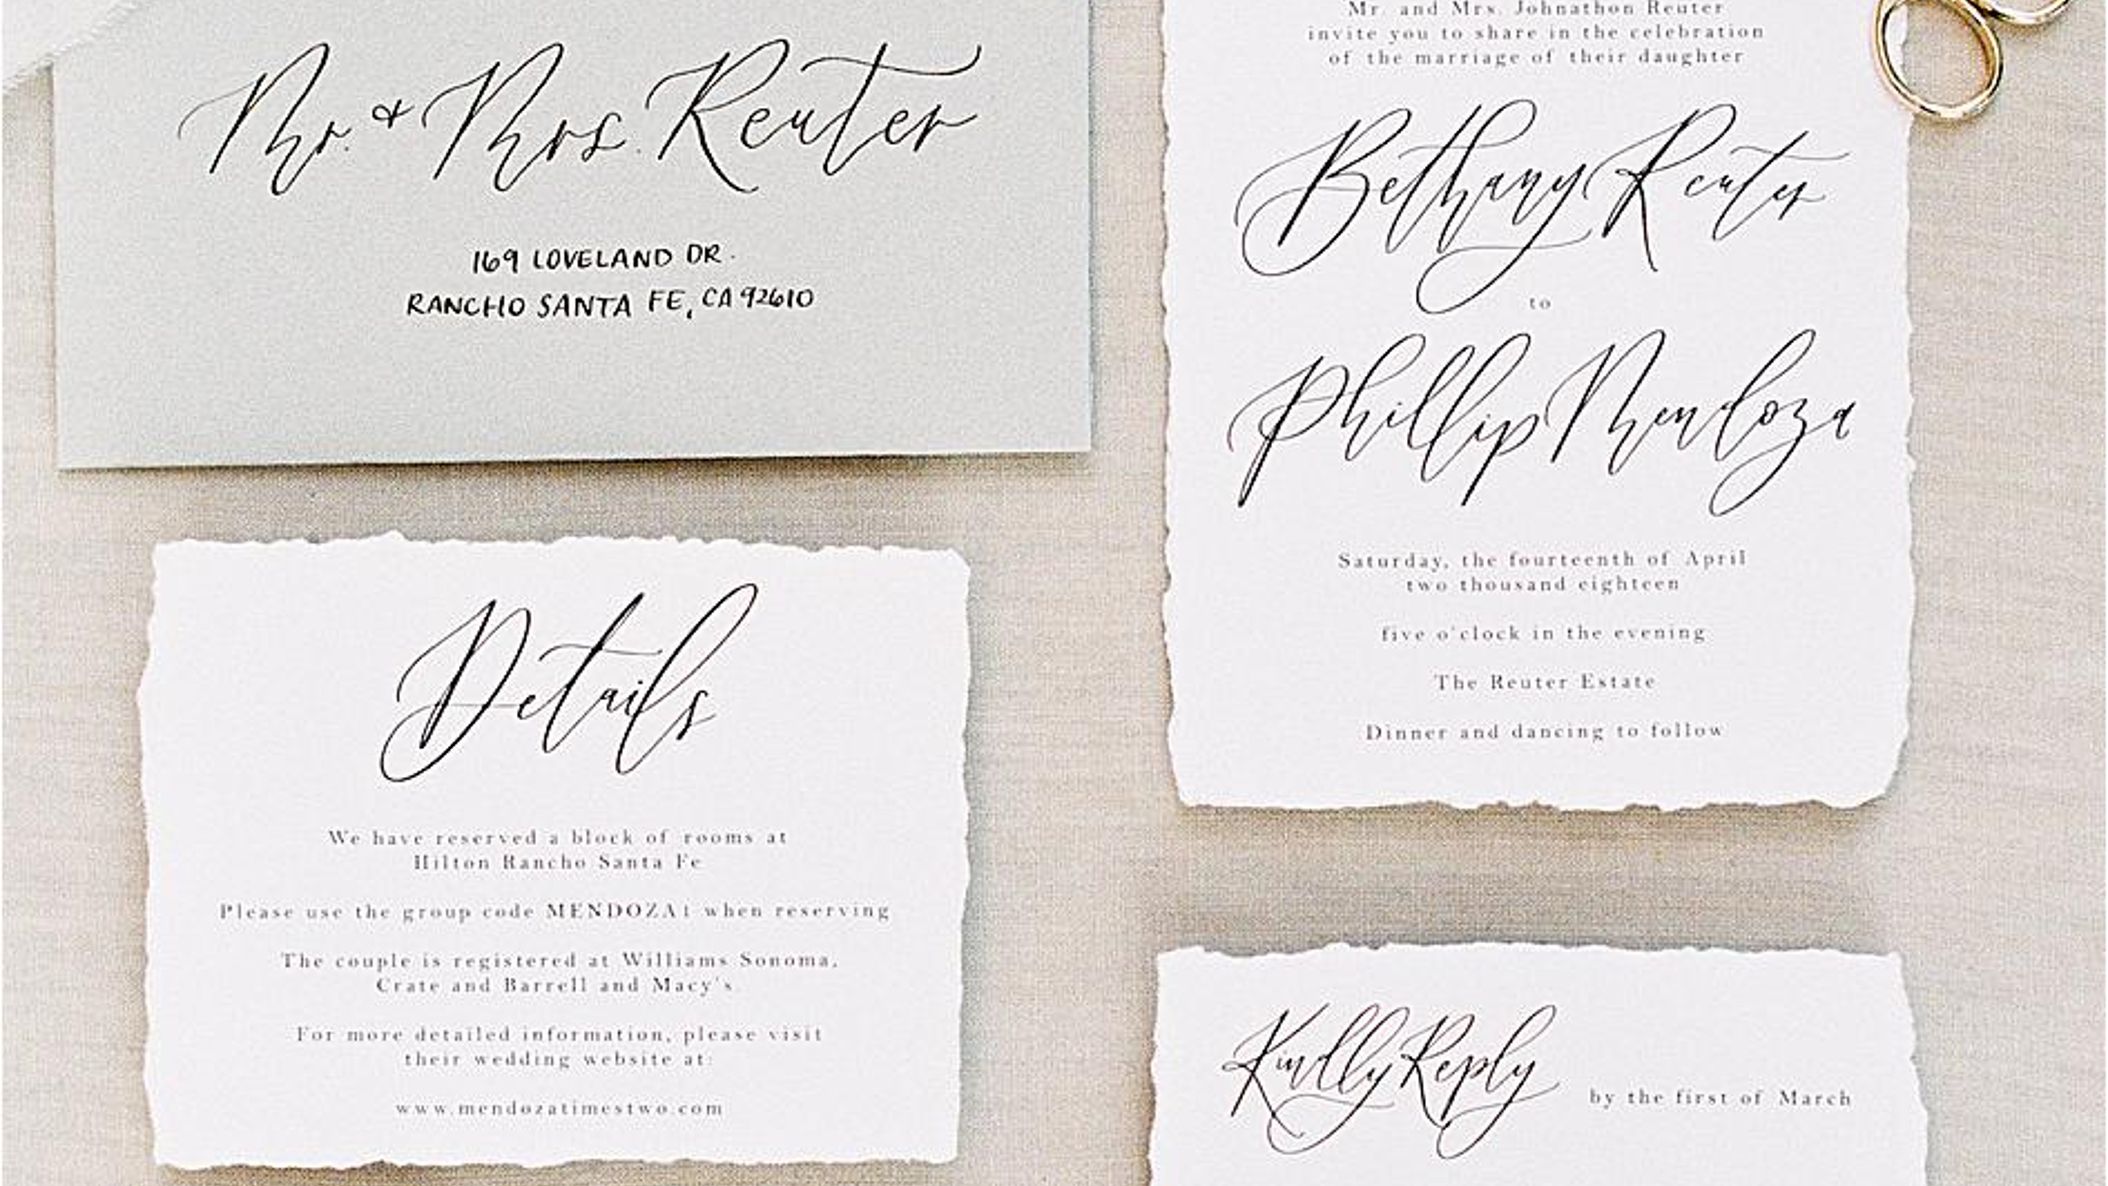 Mr. & Mrs. Reuter
169 LOVELAND DR.
RANCHO SANTA FE, CA 92610
Mr. and Mrs. Johnathon Reuter
invite you to share in the celebration
of the marriage of their daughter
Bethany Reuter
to
Phillip Mendoza
Saturday, the fourteenth of April
two thousand eighteen
five o'clock in the evening
The Reuter Estate
Dinner and dancing to follow
Details
We have reserved a block of rooms at
Hilton Rancho Santa Fe
Please use the group code MENDOZA1 when reserving
The couple is registered at Williams Sonoma,
Crate and Barrell and Macy's
For more detailed information, please visit
their wedding website at:
www.mendozatimestwo.com
Kindly Reply
by the first of March